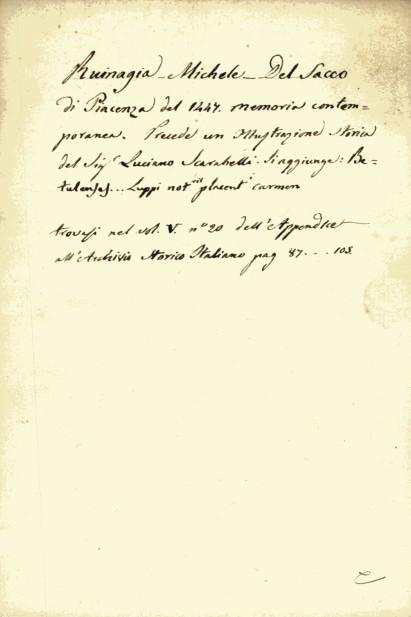 Ruinagia - Michele - Del Sacco
di Piacenza del 1447. memoria contem=
poranea. Precede un Illustrazione storica
del Sigr Luciano Scarabelli. Si aggiunge: Be=
... Luppi notrii placenti carmen
trovasi nel vol. V. no 20 dell'Appendice
all'Archivio Storico Italiano pag 87 . . . 103.